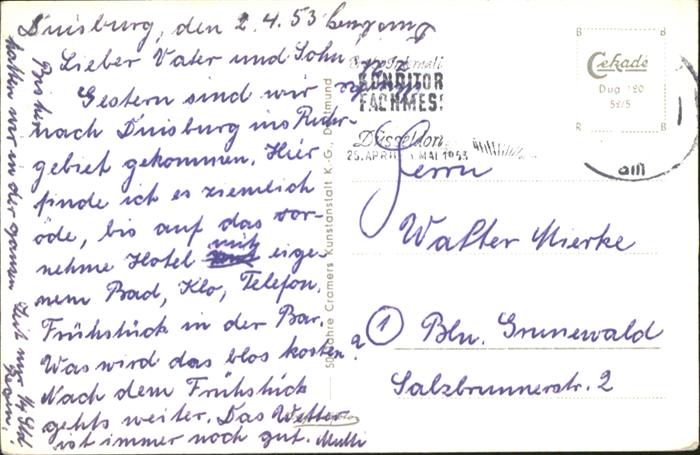 Duisburg, den 2.4.53
Lieber Vater und Sohn,
Gestern sind wir
nach Duisburg ins Ruhr-
gebiet gekommen. Hier
finde ich es ziemlich
öde, bis auf das vor-
nehme Hotel mit eige-
nem Bad, Klo, Telefon,
Frühstück in der Bar.
Was wird das blos kosten?
Nach dem Frühstück
gehts weiter. Das Wetter
ist immer noch gut. Mutti
Bisher
hatten wir in der ganzen Zeit nur 1/4 Std
Regen!
50 Jahre Cramers Kunstanstalt K.-G., Dortmund
KONDITOR
FACHMESS
Düsseldorf
25. APRIL MAI 1953
Cekade
Dug 180
53/5
B
B
R
B
Herrn
Walter Mierke
1 Bln. Grunewald
Salzbrunnerstr. 2